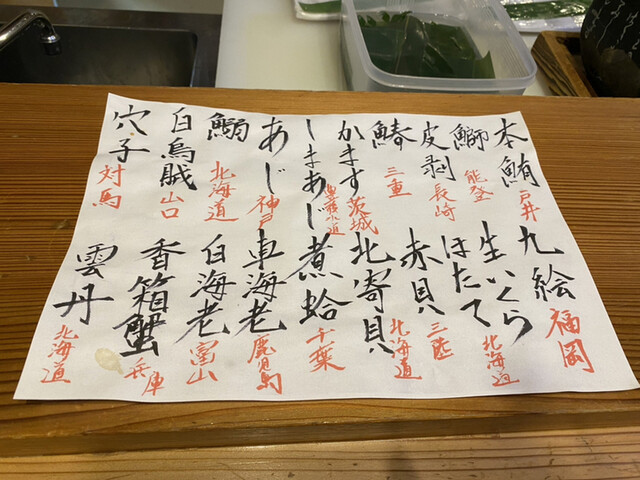 本鮪 戸井
鰤 能登
皮剥 長崎
鰆 三重
かます 茨城
しまあじ 豊後水道
あじ 神戸
鰯 北海道
白烏賊 山口
穴子 対馬
九絵 福岡
生いくら
ほたて 北海道
赤貝 三陸
北寄貝 北海道
煮蛤 千葉
車海老 鹿児島
白海老 富山
香箱蟹 兵庫
雲丹 北海道